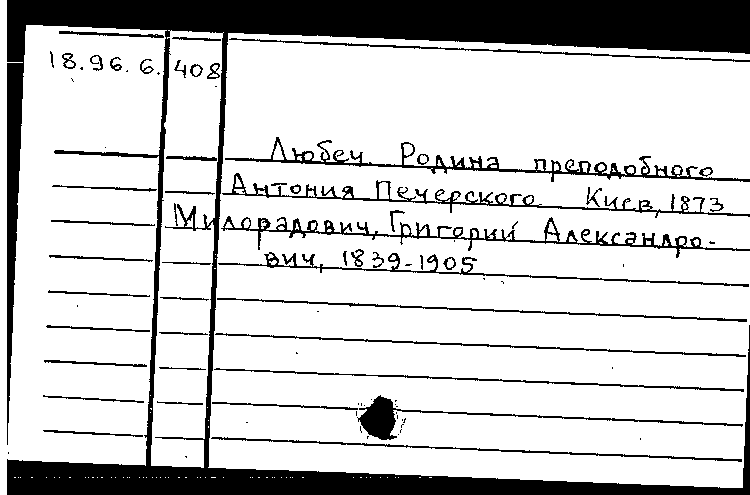 18.96.6. 408
Любеч. Родина преподобного
Антония Печерского. Киев, 1873
Милорадович, Григорий Александро-
вич, 1839-1905